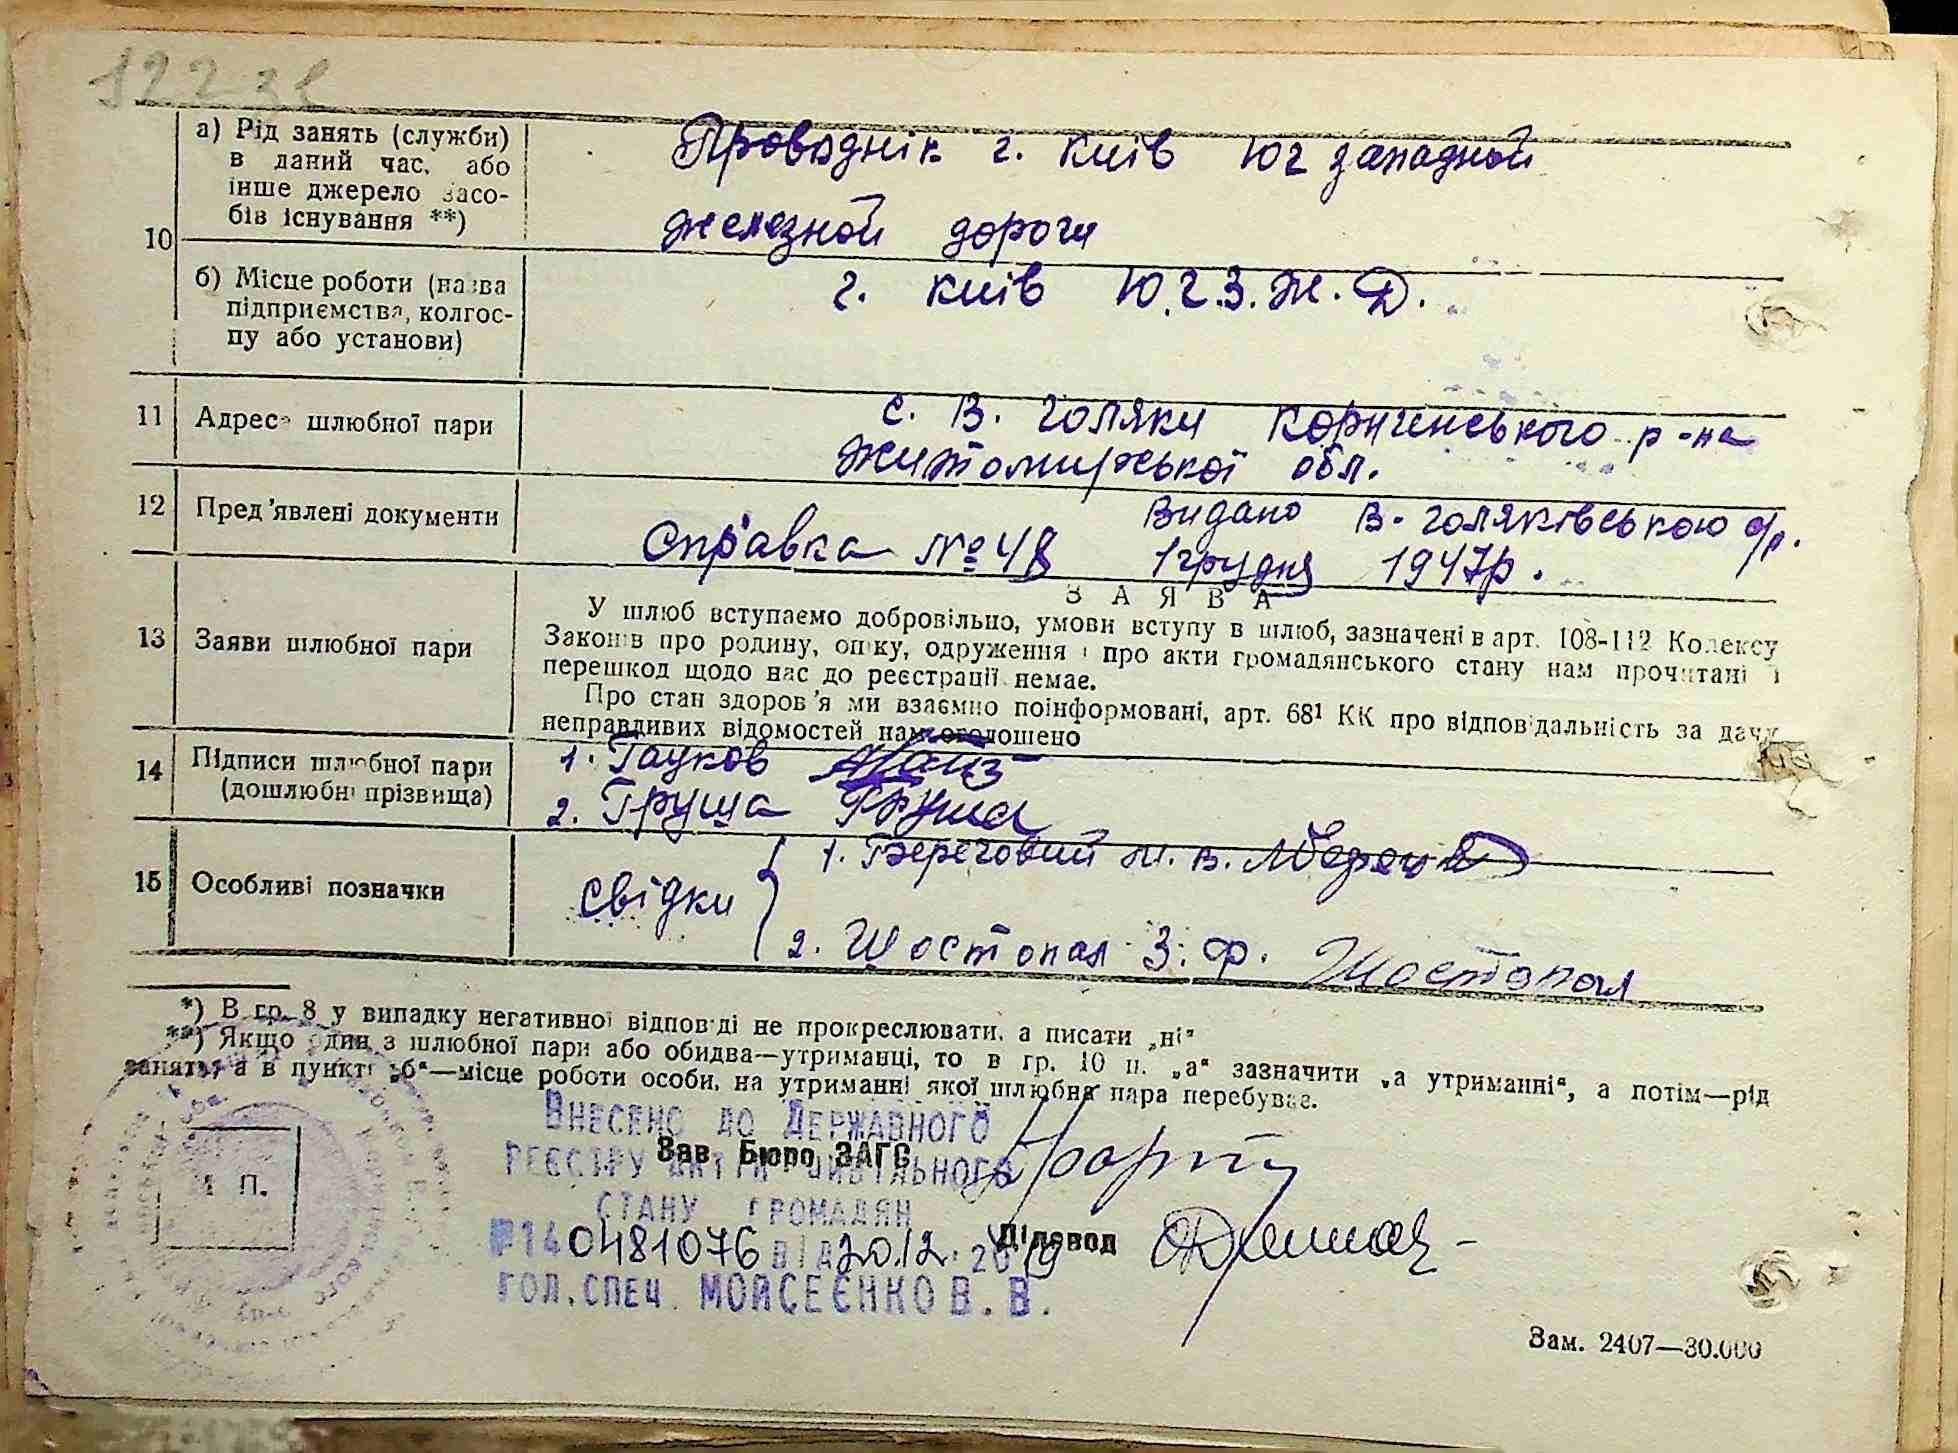 122 зв
10
а) Рід занять (служби)
в даний час, або
інше джерело засо-
бів існування **)
Проводнік г. Київ Юг западной
железной дороги
б) Місце роботи (назва
підприємства, колгос-
пу або установи)
г. Київ Ю.г.З.Ж.Д.
11 Адреса шлюбної пари
с. В. Голяки Корнинського р-на
Житомирської обл.
12 Пред'явлені документи
Видано В-Голяківською с/р.
Справка № 48 1 грудня 1947р.
13 Заяви шлюбної пари
ЗАЯВА
У шлюб вступаємо добровільно, умови вступу в шлюб, зазначені в арт. 108-112 Кодексу
Законів про родину, опіку, одруження і про акти громадянського стану нам прочитані і
перешкод щодо нас до реєстрації немає.
Про стан здоров'я ми взаємно поінформовані, арт. 68¹ КК про відповідальність за дачу
неправдивих відомостей нам оголошено
14 Підписи шлюбної пари
(дошлюбні прізвища)
1. Гауков
2. Груша Груша
15 Особливі позначки
свідки
1. Береговий М. В.
2. Шостопал З. Ф. Шостопал
*) В гр. 8 у випадку негативної відповіді не прокреслювати, а писати „ні“
**) Якщо один з шлюбної пари або обидва—утриманці, то в гр. 10 п. „а“ зазначити „а утриманні“, а потім—рід
занять, а в пункті „б“—місце роботи особи, на утриманні якої шлюбна пара перебуває.
ВНЕСЕНО ДО ДЕРЖАВНОГО
Зав. Бюро ЗАГС
РЕЄСТРУ АКТІВ ЦИВІЛЬНОГО
СТАНУ ГРОМАДЯН
М П.
№140481076 ВІД 20.12.2019
Діловод
ГОЛ.СПЕЦ. МОЙСЕЄНКО В. В.
Зам. 2407—30.000